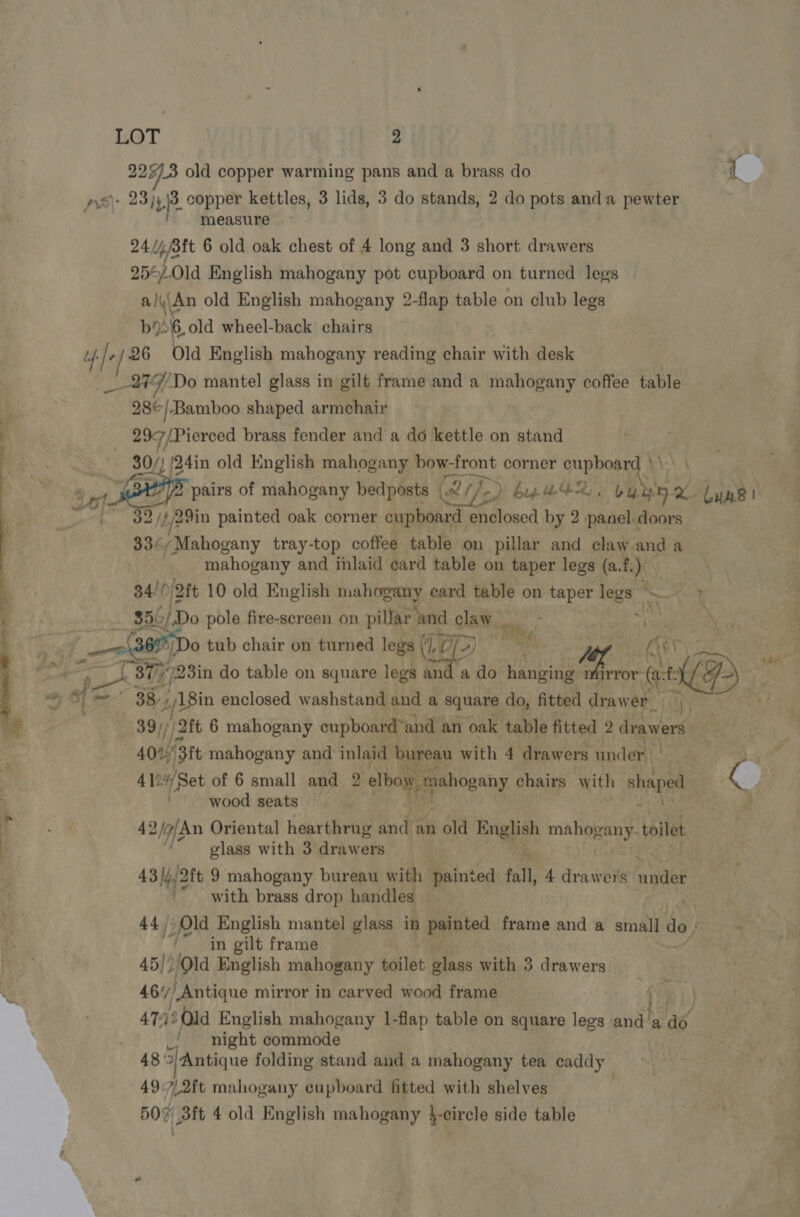 LOT 2
22 3 old copper warming pans and a brass do
23 3 copper kettles, 3 lids, 3 do stands, 2 do pots and a pewter
measure
24 3ft 6 old oak chest of 4 long and 3 short drawers
25 Old English mahogany pot cupboard on turned legs
a An old English mahogany 2-flap table on club legs
b 6 old wheel-back chairs
26 Old English mahogany reading chair with desk
27 Do mantel glass in gilt frame and a mahogany coffee table
28 Bamboo shaped armchair
29 Pierced brass fender and a do kettle on stand
30 24in old English mahogany bow-front corner cupboard
2 pairs of mahogany bedposts
32 29in painted oak corner cupboard enclosed by 2 panel doors
33 Mahogany tray-top coffee table on pillar and claw and a
mahogany and inlaid card table on taper legs (a.f.)
34 2ft 10 old English mahogany card table on taper legs
35 Do pole fire-screen on pillar and claw
36 Do tub chair on turned legs
37 23in do table on square legs and a do hanging mirror (a.f.)
38 18in enclosed washstand and a square do, fitted drawer
39 2ft 6 mahogany cupboard and an oak table fitted 2 drawers
40 3ft mahogany and inlaid bureau with 4 drawers under
41 Set of 6 small and 2 elbow mahogany chairs with shaped
wood seats
42 An Oriental hearthrug and an old English mahogany toilet
glass with 3 drawers
43 2ft 9 mahogany bureau with painted fall, 4 drawers under
with brass drop handles
44 Old English mantel glass in painted frame and a small do
in gilt frame
45 Old English mahogany toilet glass with 3 drawers
46 Antique mirror in carved wood frame
47 Old English mahogany 1-flap table on square legs and a do
night commode
48 Antique folding stand and a mahogany tea caddy
49 2ft mahogany cupboard fitted with shelves
50 3ft 4 old English mahogany ½-circle side table